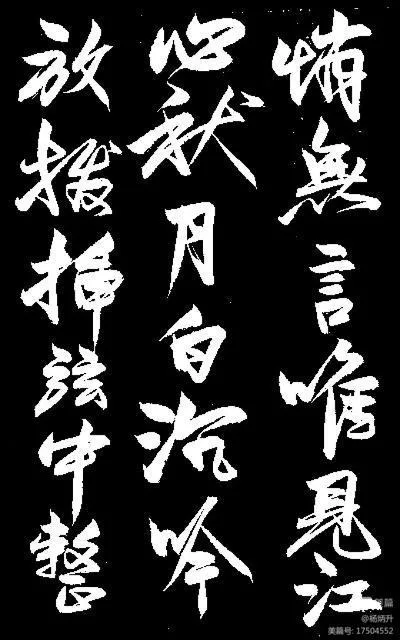 悄無言唯見江
心秋月白沉吟
放撥插弦中整
美篇
@杨炳升
美篇号: 17504552